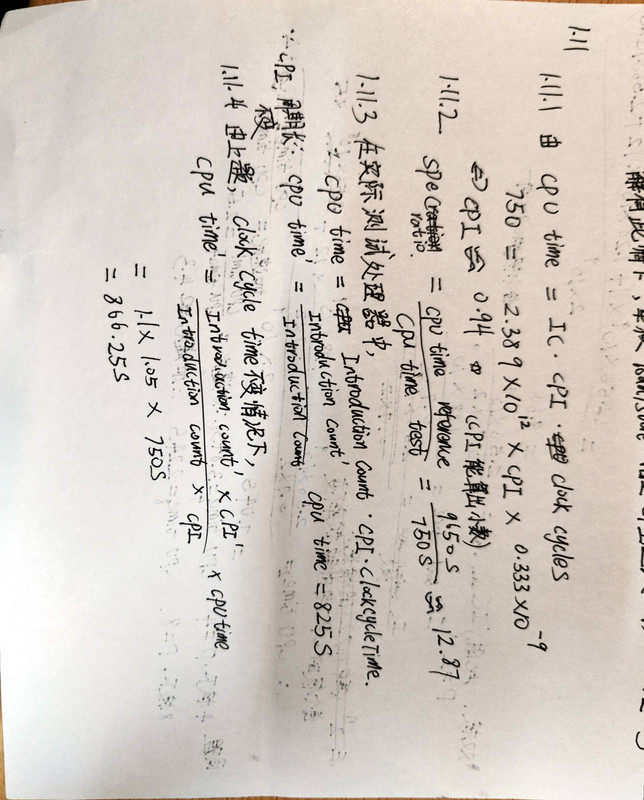 解得此情下,
1.11
1.11.1 由 CPU time = IC · CPI · clock cycles
750 = 2.389 × 10¹² × CPI × 0.333 × 10⁻⁹
⇔ CPI ≈ 0.94 (CPI 能算出小数)
1.11.2 Spec ratio = cpu time reference / cpu time test = 9650s / 750s ≈ 12.87
1.11.3 在实际测试处理器中,
∵ CPU time = Introduction Count · CPI · clockcycleTime.
∵ CPI, 周期长不变. CPU time' = Introduction count' / Introduction Count cpu time = 825s
1.11.4 由上题, clock cycle time 不变情况下,
CPU time' = Introduction count' × CPI' / Introduction count × CPI × cpu time
= 1.1 × 1.05 × 750s
= 866.25s